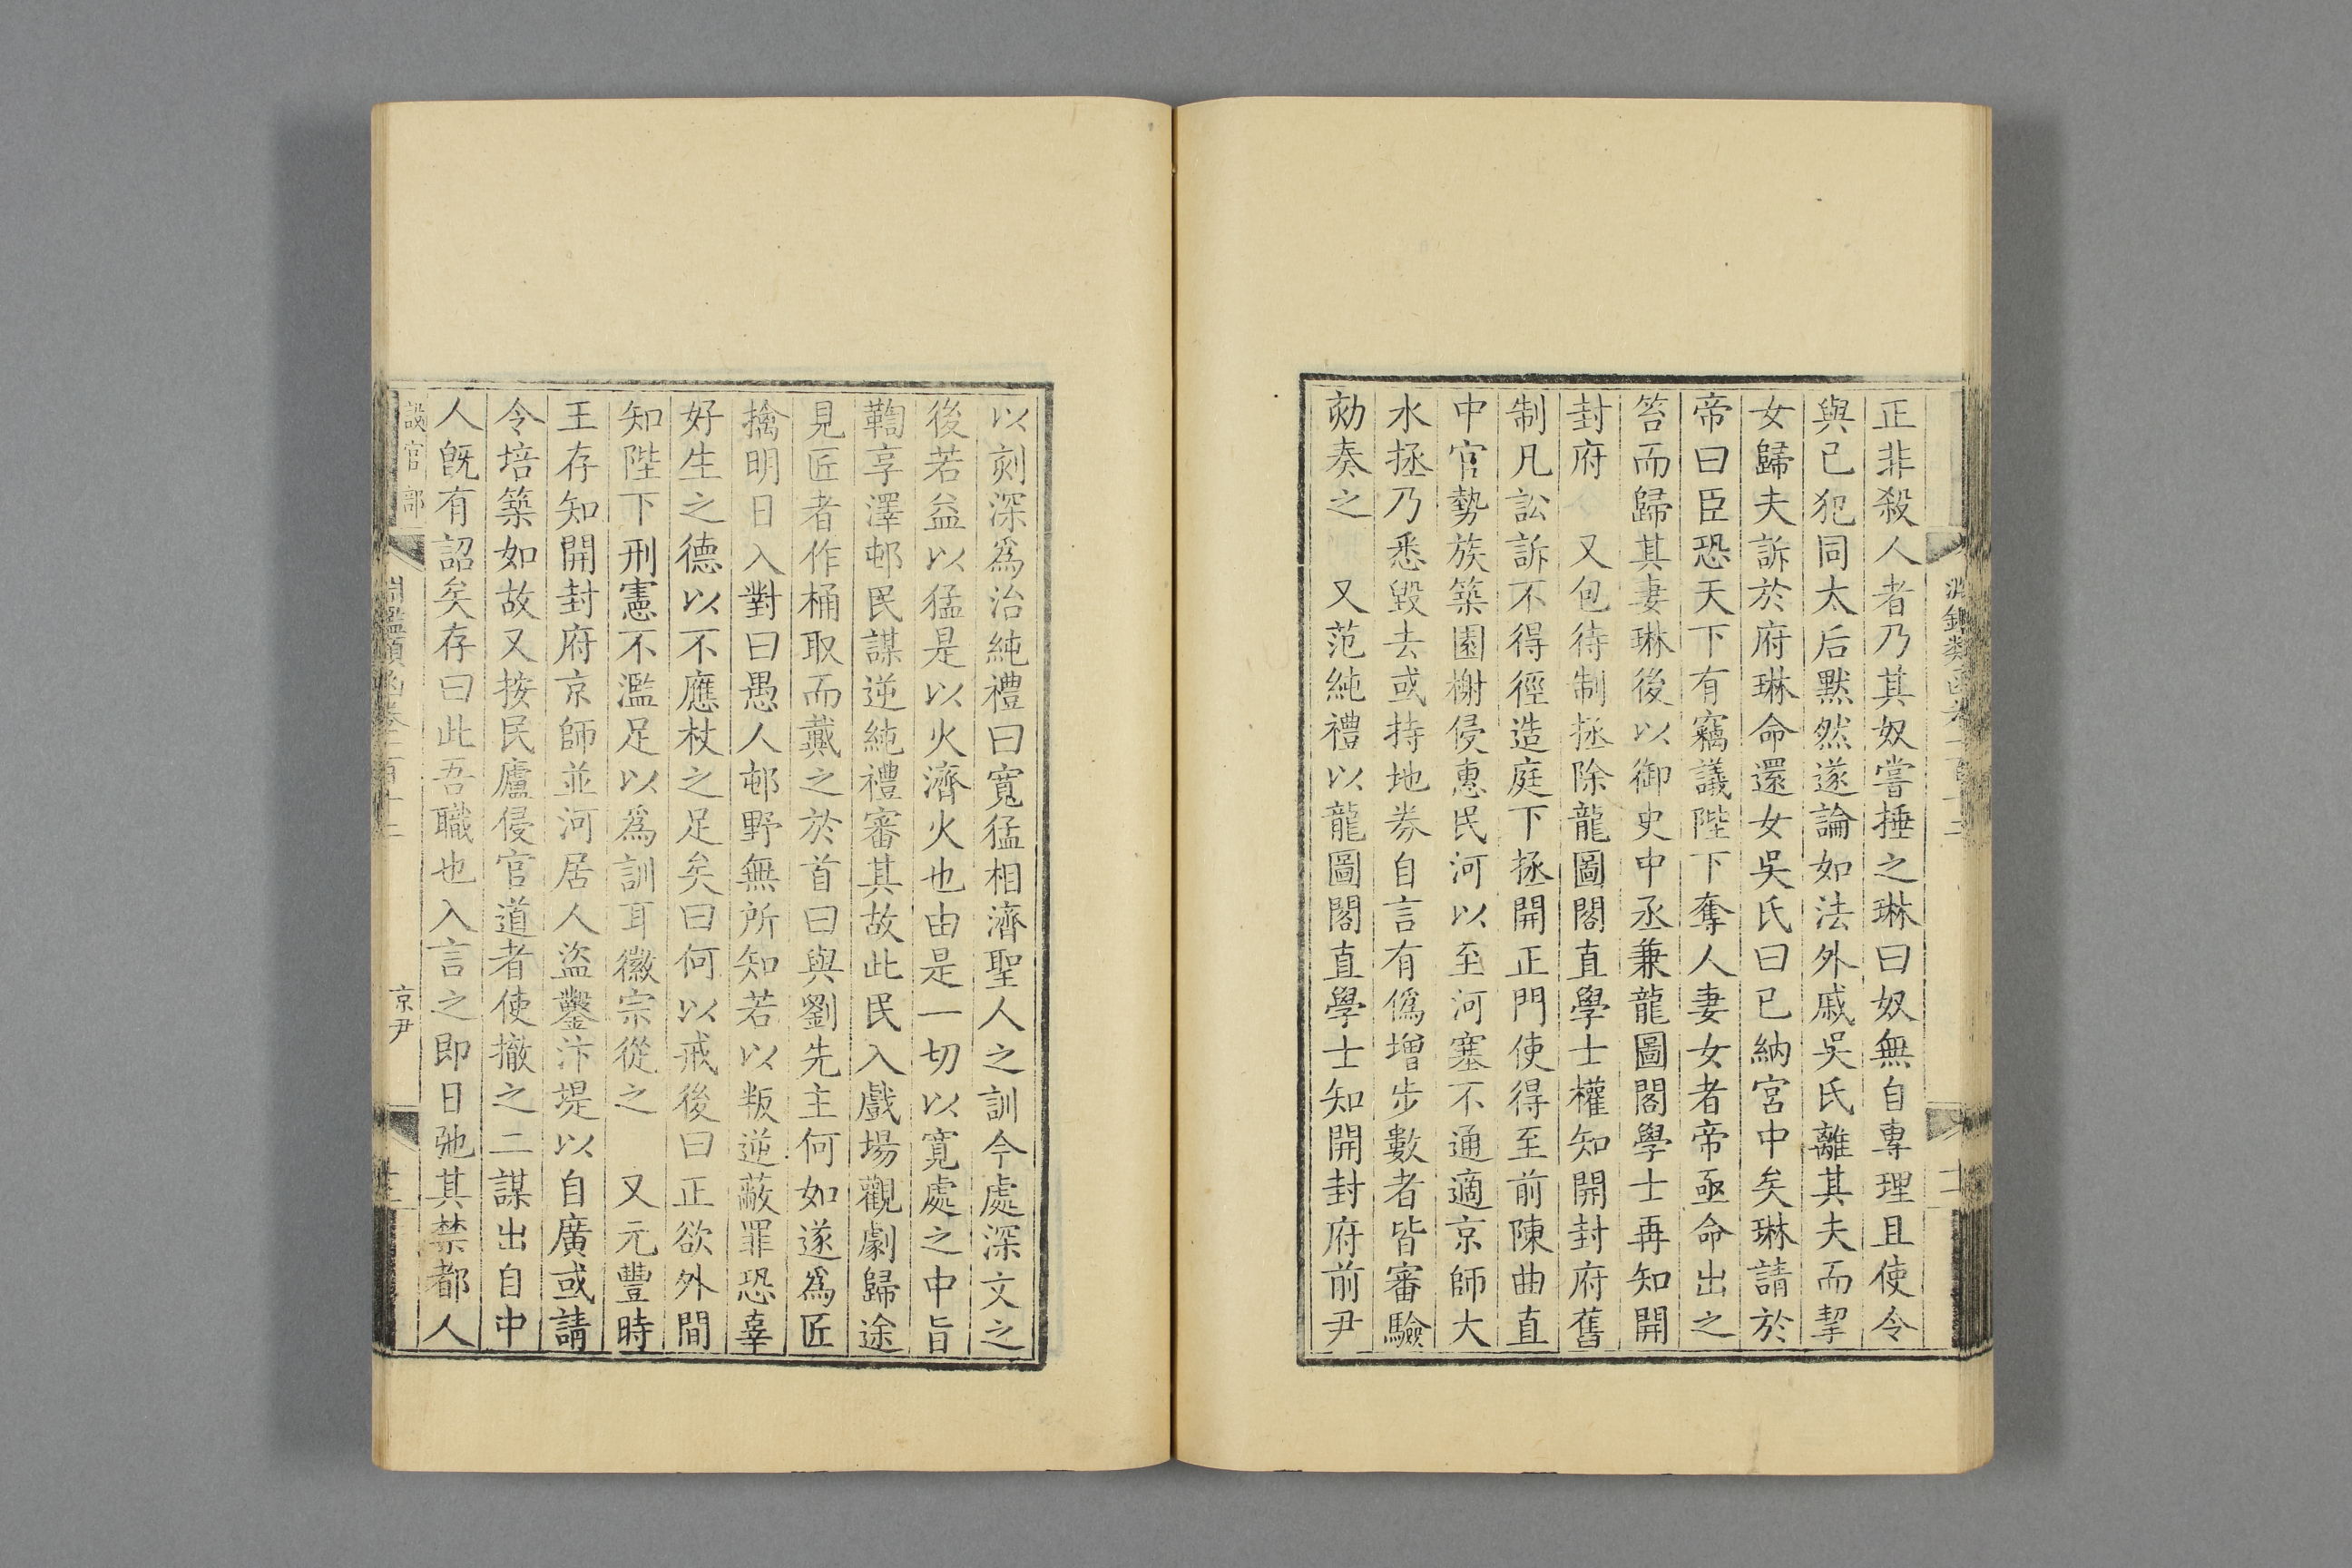 正非殺人者乃其奴嘗捶之琳曰奴無自專理且使令
與已犯同太后默然遂論如法外戚吳氏離其夫而挈
女歸夫訴於府琳命還女吳氏曰已納宮中矣琳請於
帝曰臣恐天下有竊議陛下奪人妻女者帝亟命出之
笞而歸其妻琳後以御史中丞兼龍圖閣學士再知開
封府　又包待制拯除龍圖閣直學士權知開封府舊
制凡訟訴不得徑造庭下拯開正門使得至前陳曲直
中官勢族築園榭侵惠民河以至河塞不通適京師大
水拯乃悉毀去或持地券自言有僞增步數者皆審驗
劾奏之　又范純禮以龍圖閣直學士知開封府前尹
以刻深爲治純禮曰寬猛相濟聖人之訓今處深文之
後若益以猛是以火濟火也由是一切以寬處之中旨
鞫享澤邨民謀逆純禮審其故此民入戲場觀劇歸途
見匠者作桶取而戴之於首曰與劉先主何如遂爲匠
擒明日入對曰愚人邨野無所知若以叛逆蔽罪恐辜
好生之德以不應杖之足矣曰何以戒後曰正欲外間
知陛下刑憲不濫足以爲訓耳徽宗從之　又元豐時
王存知開封府京師並河居人盜鑿汴堤以自廣或請
令培築如故又按民廬侵官道者使撤之二謀出自中
人旣有詔矣存曰此吾職也入言之即日弛其禁都人
設官部
淵鑑類函卷
京尹